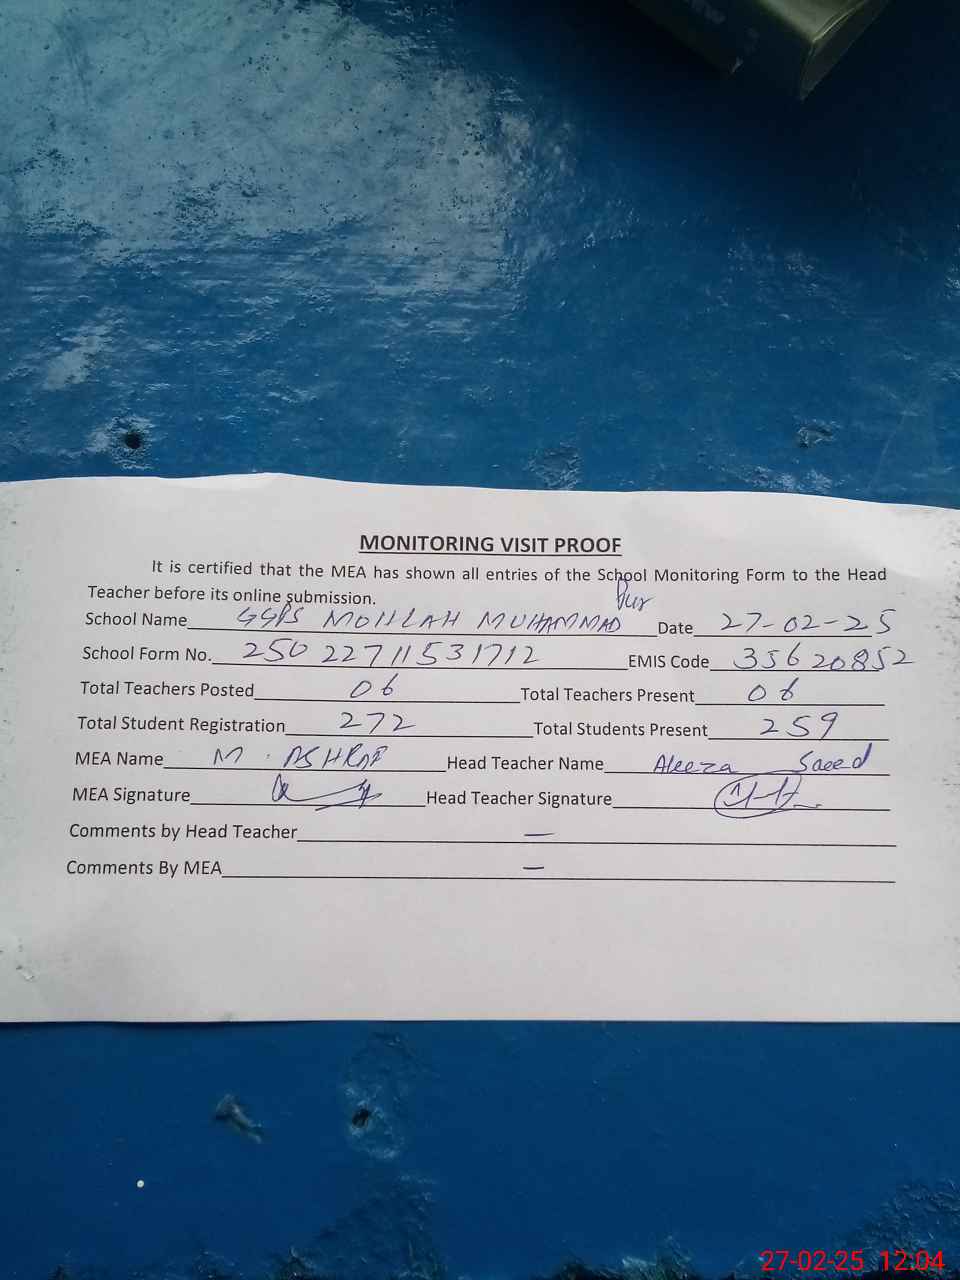 MONITORING VISIT PROOF
It is certified that the MEA has shown all entries of the School Monitoring Form to the Head
Teacher before its online submission.
School Name GGPS MOHLAH MUHAMMAD Pur Date 27-02-25
School Form No. 25022711531712 EMIS Code 35620852
Total Teachers Posted 06 Total Teachers Present 06
Total Student Registration 272 Total Students Present 259
MEA Name M. ASHRAF Head Teacher Name Aleeza Saeed
MEA Signature Head Teacher Signature
Comments by Head Teacher —
Comments By MEA —
27-02-25 12:04